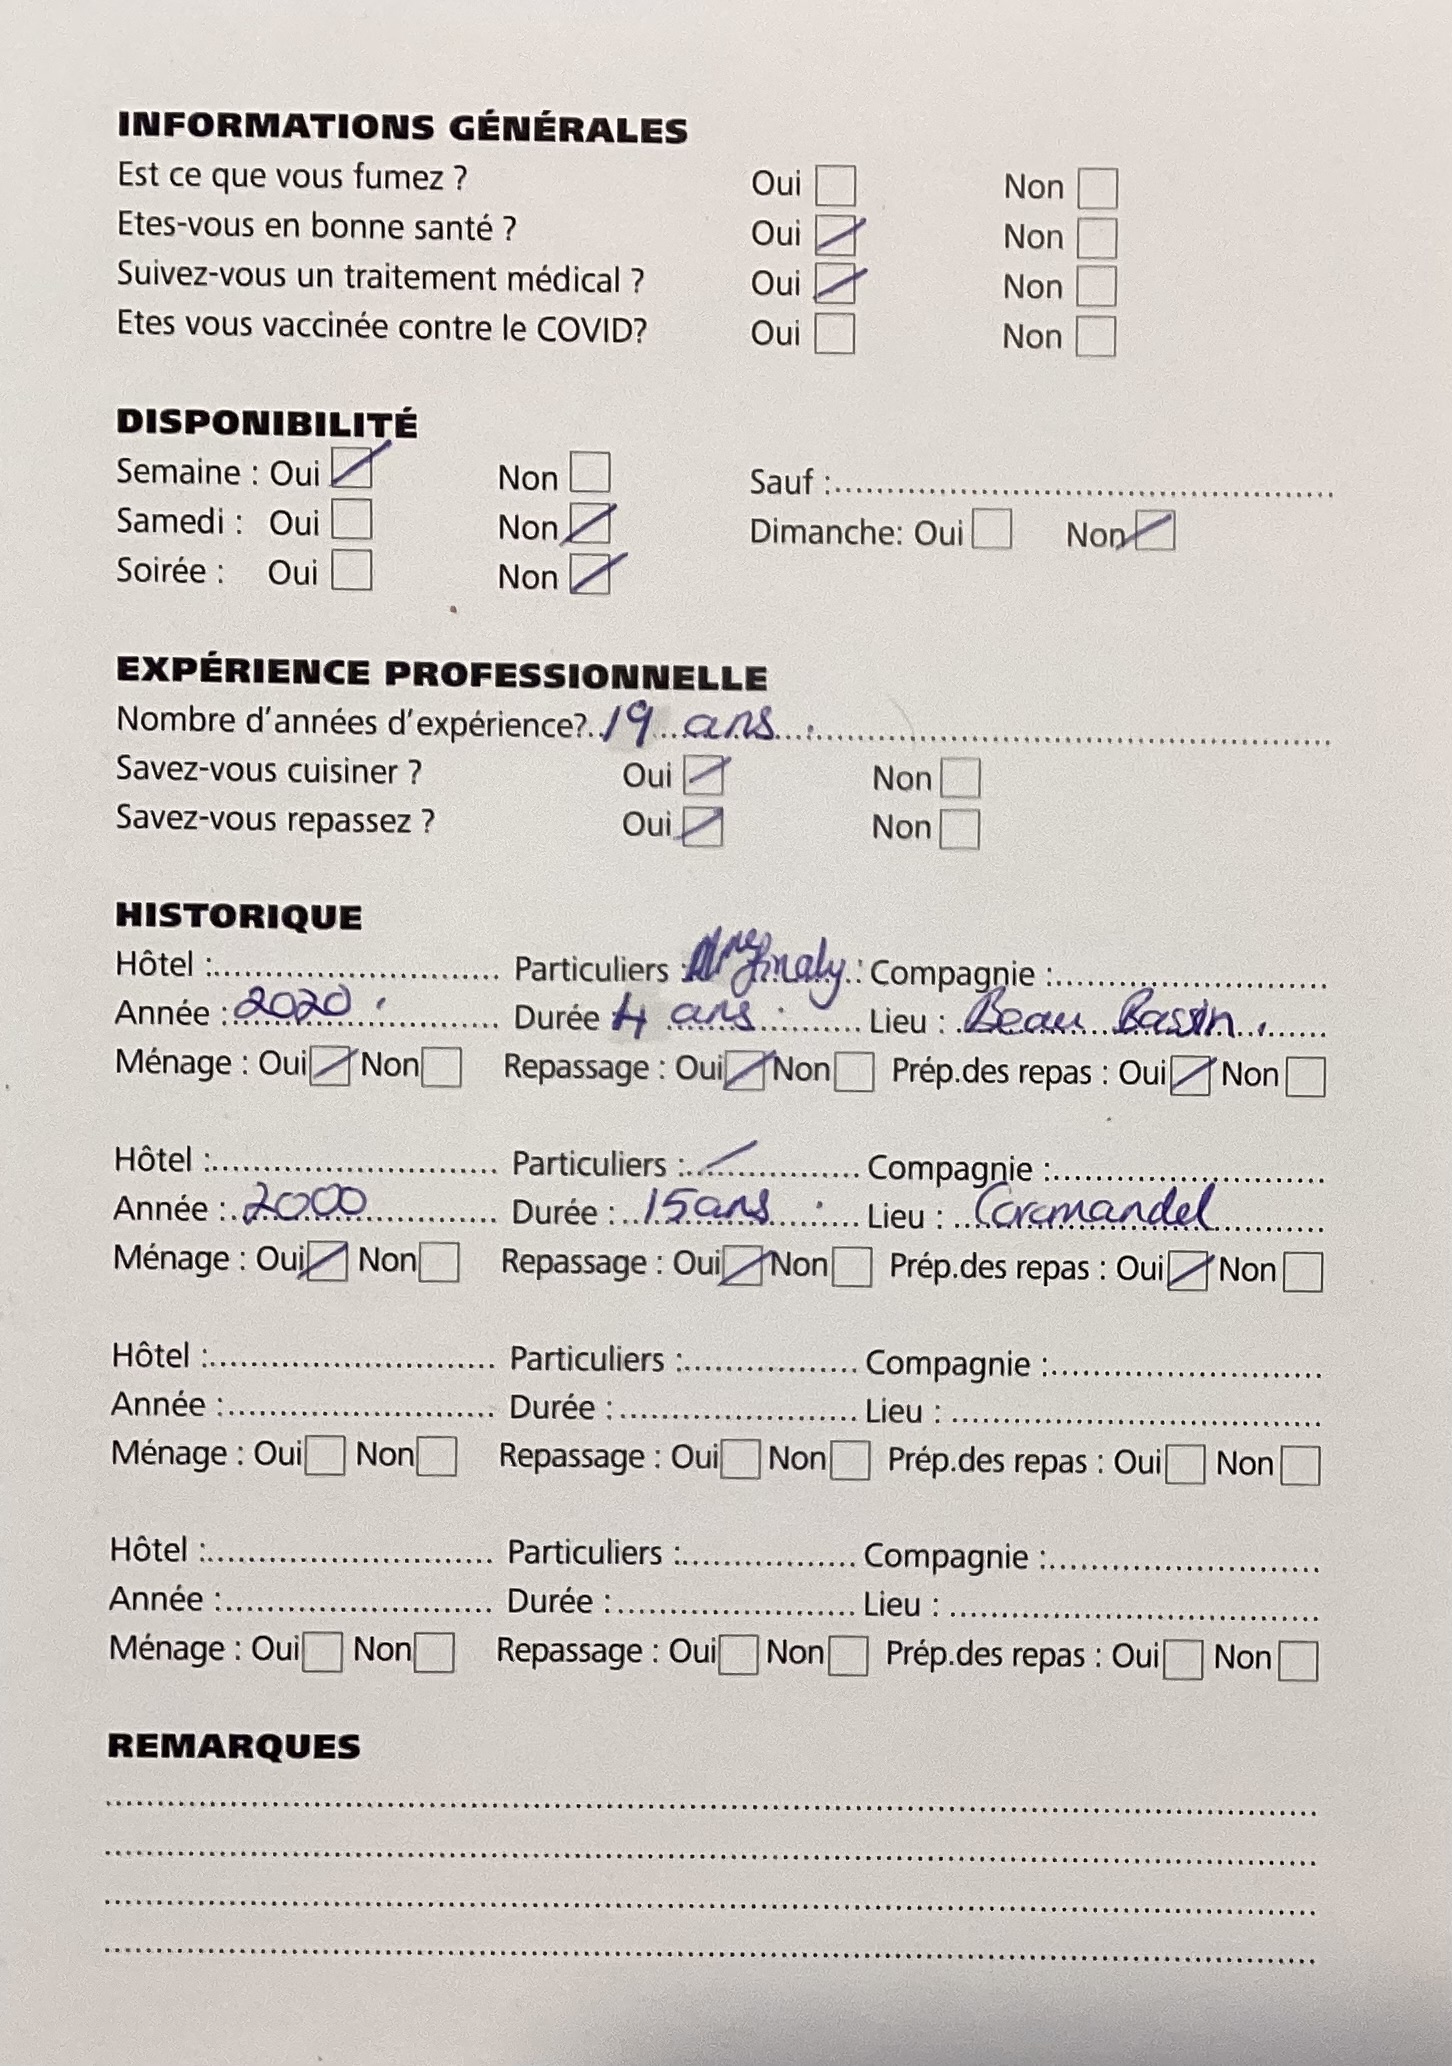 INFORMATIONS GÉNÉRALES
Est ce que vous fumez ? Oui Non
Etes-vous en bonne santé ? Oui Non
Suivez-vous un traitement médical ? Oui Non
Etes vous vaccinée contre le COVID? Oui Non
DISPONIBILITÉ
Semaine : Oui Non Sauf :
Samedi : Oui Non Dimanche: Oui Non
Soirée : Oui Non
EXPÉRIENCE PROFESSIONNELLE
Nombre d'années d'expérience? 19 ans
Savez-vous cuisiner ? Oui Non
Savez-vous repassez ? Oui Non
HISTORIQUE
Hôtel : Particuliers : Compagnie :
Année : 2020 Durée 4 ans Lieu : Beau Bassin
Ménage : Oui Non Repassage : Oui Non Prép.des repas : Oui Non
Hôtel : Particuliers : Compagnie :
Année : 2000 Durée : 15 ans Lieu : Coromandel
Ménage : Oui Non Repassage : Oui Non Prép.des repas : Oui Non
Hôtel : Particuliers : Compagnie :
Année : Durée : Lieu :
Ménage : Oui Non Repassage : Oui Non Prép.des repas : Oui Non
Hôtel : Particuliers : Compagnie :
Année : Durée : Lieu :
Ménage : Oui Non Repassage : Oui Non Prép.des repas : Oui Non
REMARQUES